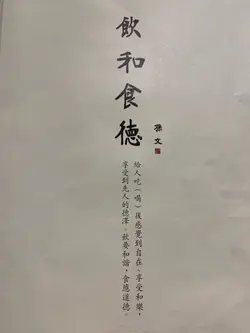 飲和食德
孫文
給人吃（喝）後感覺到自在、享受和樂，
享受到先人的德澤。飲要和諧，食應道德。